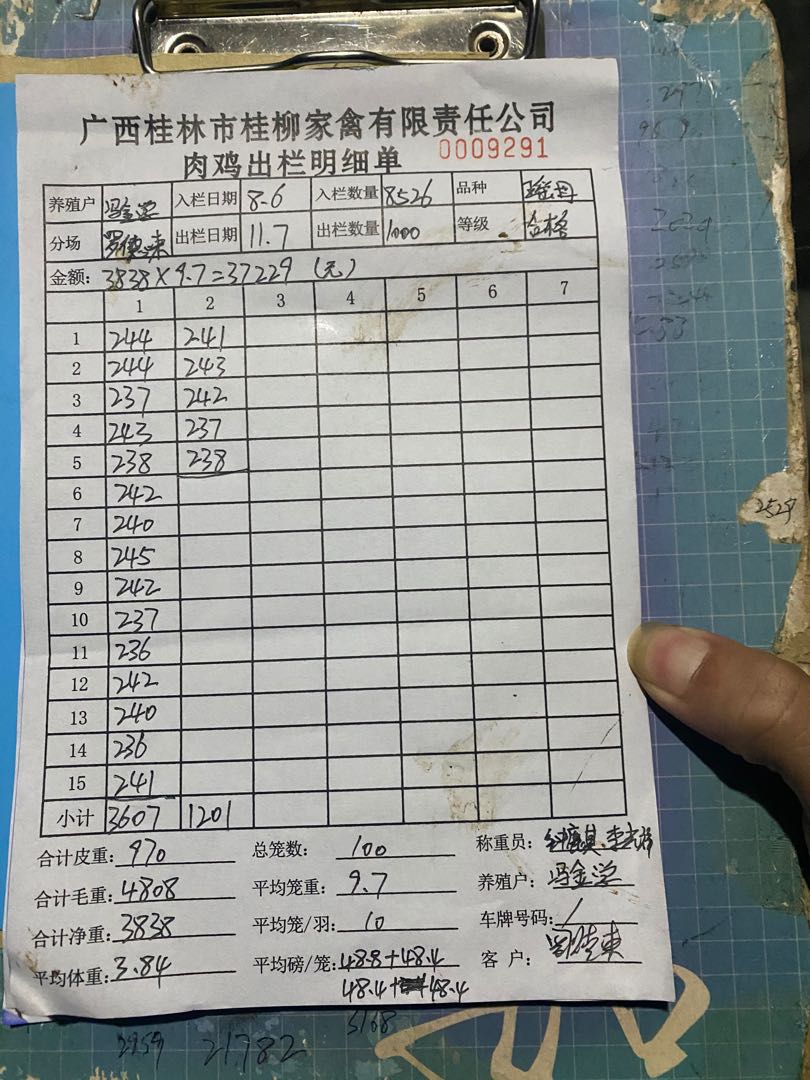 广西桂林市桂柳家禽有限责任公司
肉鸡出栏明细单 0009291
养殖户 冯金学 入栏日期 8.6 入栏数量 8526 品种
分场 出栏日期 11.7 出栏数量 1000 等级 合格
金额: 3838×9.7=37229 (元)
1 2 3 4 5 6 7
1 244 241
2 244 243
3 237 242
4 243 237
5 238 238
6 242
7 240
8 245
9 242
10 237
11 236
12 242
13 240
14 236
15 241
小计 3607 1201
合计皮重: 970 总笼数: 100 称重员:
合计毛重: 4808 平均笼重: 9.7 养殖户: 冯金学
合计净重: 3838 平均笼/羽: 10 车牌号码: /
平均体重: 3.84 平均磅/笼: 48.8+48.4 客 户:
48.4+48.4
2529
3168
2959 21782